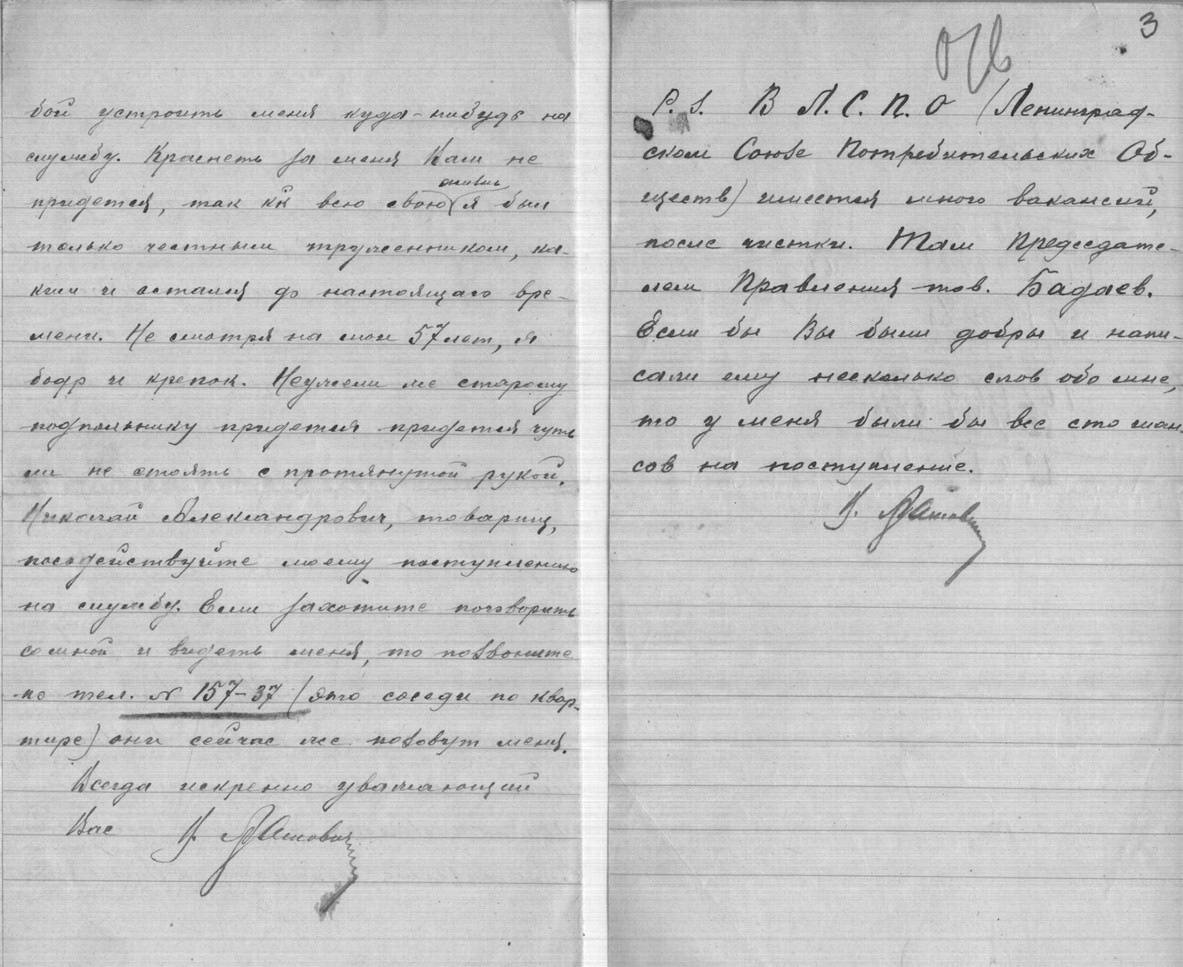 бой устроить меня куда-нибудь на
службу. Краснеть за меня Вам не
придется, так как всю свою жизнь я был
только честным тружеником, ка-
ким и остался до настоящаго вре-
мени. Не смотря на мои 57 лет, я
бодр и крепок. Неужели же старому
подпольнику придется придется чуть
ли не стоять с протянутой рукой.
Николай Александрович, товарищ,
посодействуйте моему поступлению
на службу. Если захотите поговорить
со мной и видеть меня, то позвоните
по тел. № 157-37 (это соседи по квар-
тире) они сейчас же позовут меня.
Всегда искренно уважающий
Вас
3
P.S. В Л.С.П.О (Ленинград-
ском Союзе Потребительских Об-
ществ) имеется много вакансий,
после чистки. Там Председате-
лем Правления тов. Бадаев.
Если бы Вы были добры и напи-
сали ему несколько слов обо мне,
то у меня были бы все сто шан-
сов на поступление.